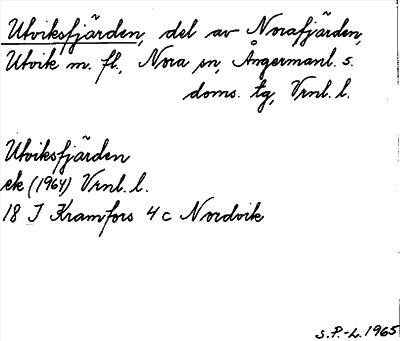 Utviksfjärden, del av Norafjärden,
Utvik m. fl., Nora sn, Ångermanl. s.
doms. tg, Vrnl. l.
Utviksfjärden
ek (1964) Vrnl. l.
18 J Kramfors 4 c Nordvik
S.P.-L. 1965